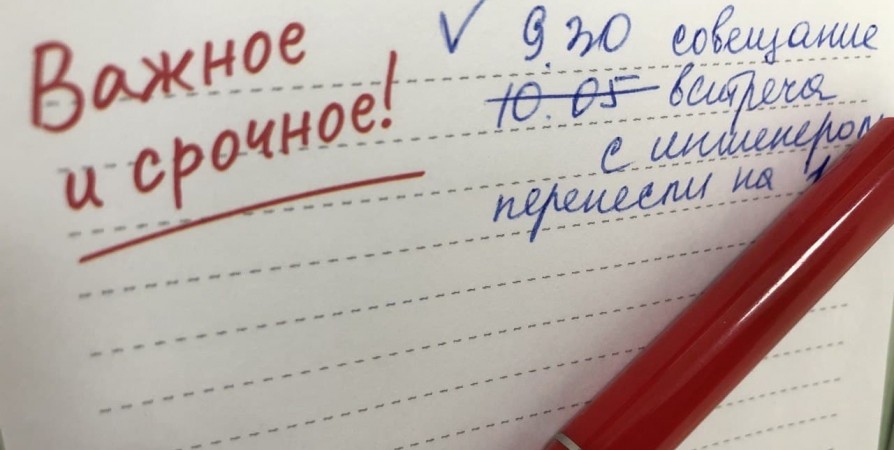 Важное
и срочное!
✓ 9.30 совещание
10.05 встреча
с инженером
перенесли на